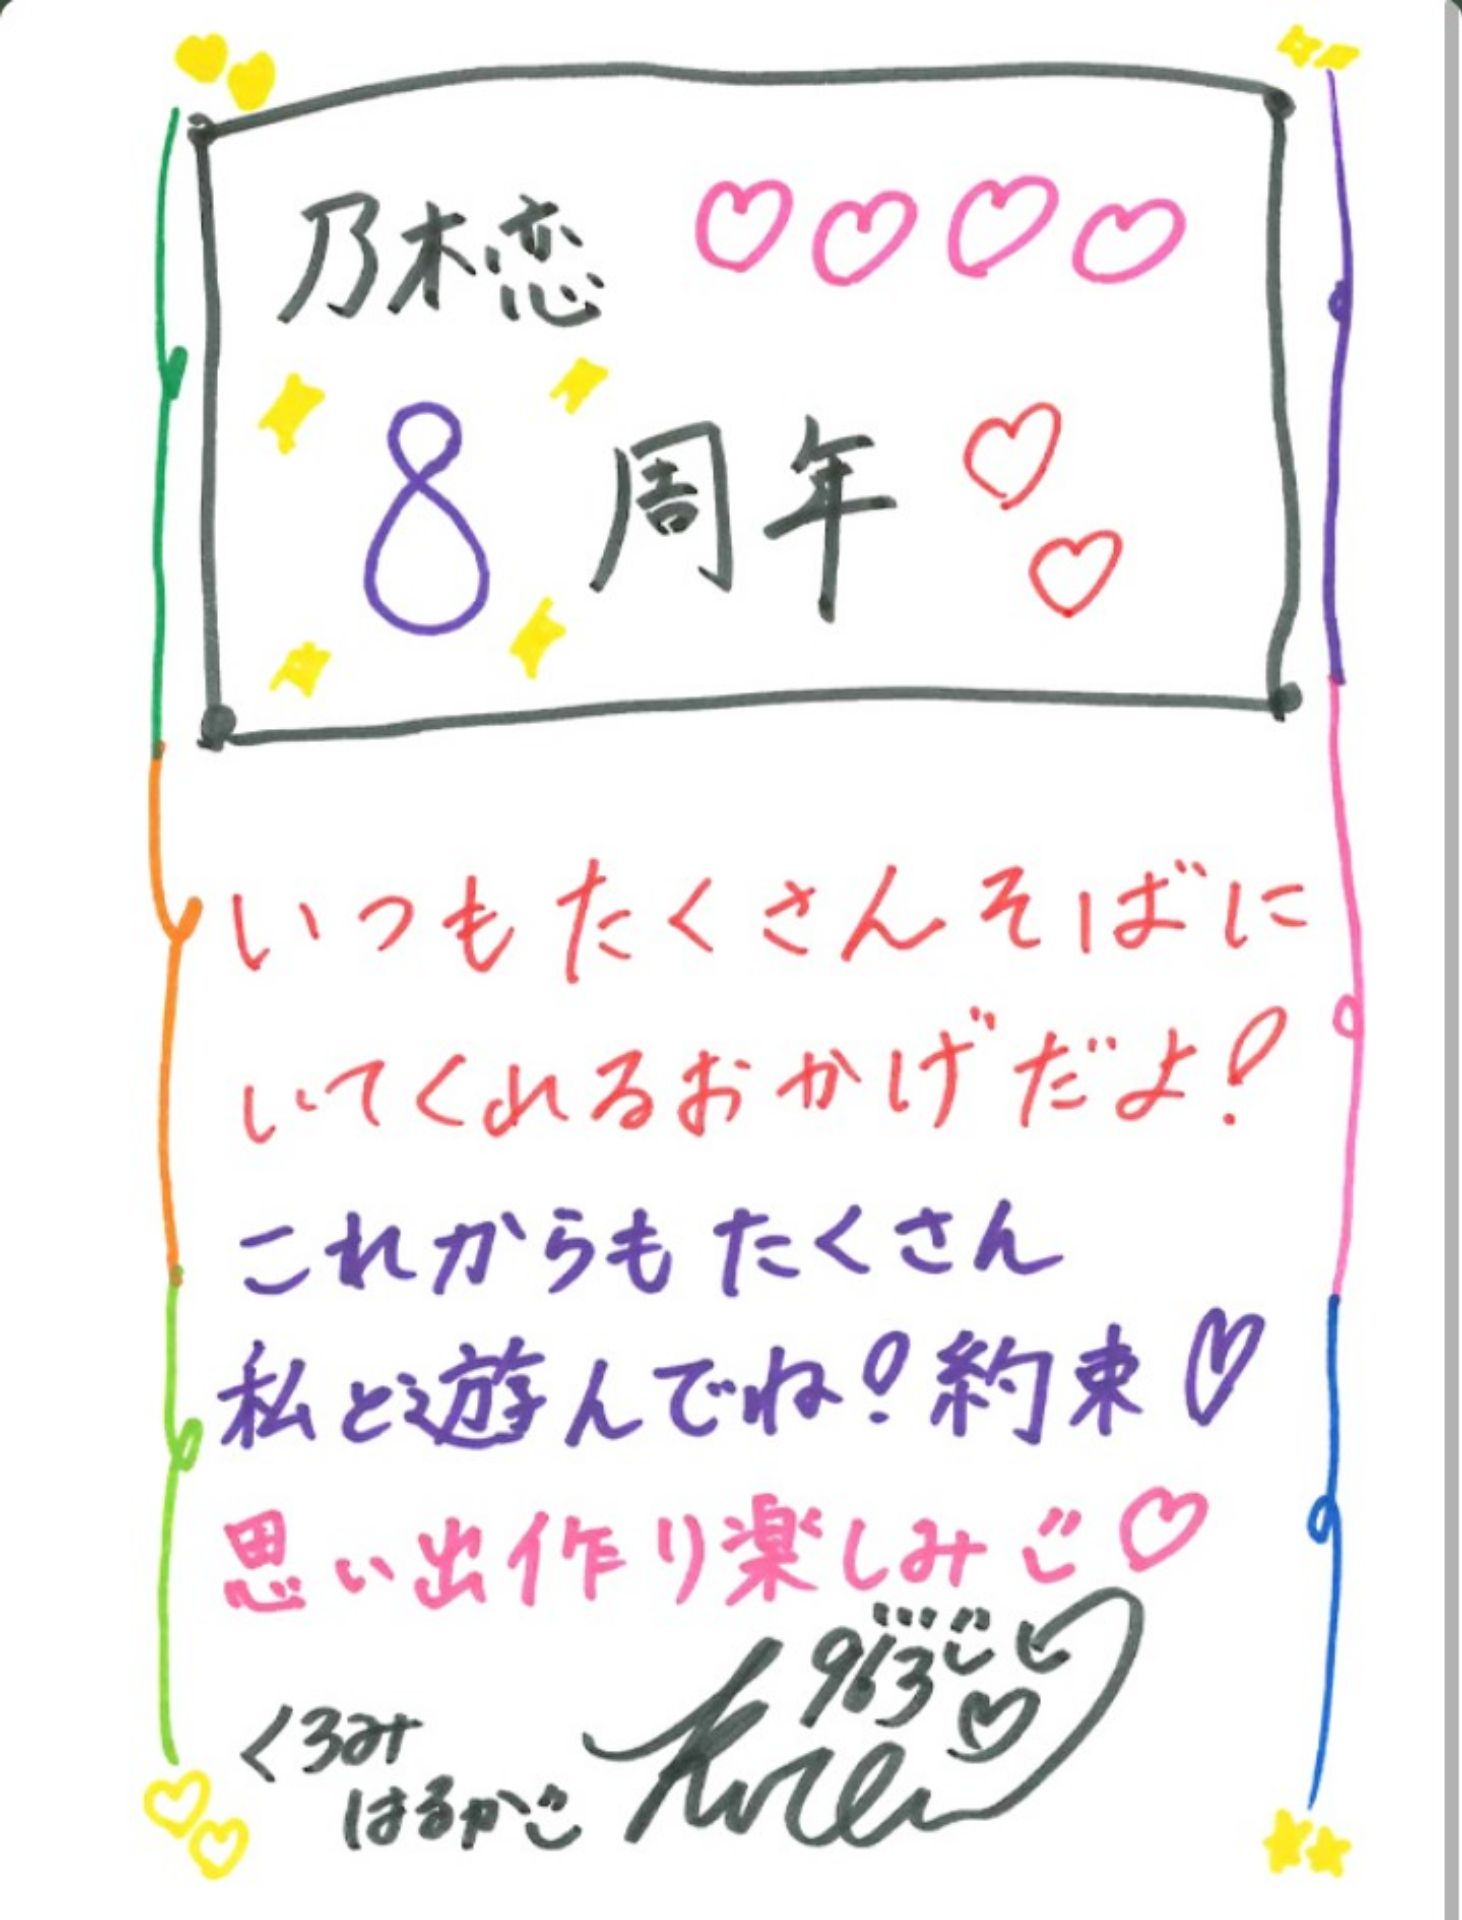 乃木恋 ♡♡♡♡
8周年 ♡♡
いつもたくさんそばに
いてくれるおかげだよ!
これからもたくさん
私と遊んでね!約束♡
思い出作り楽しみ♡
963
くろみ
はるか